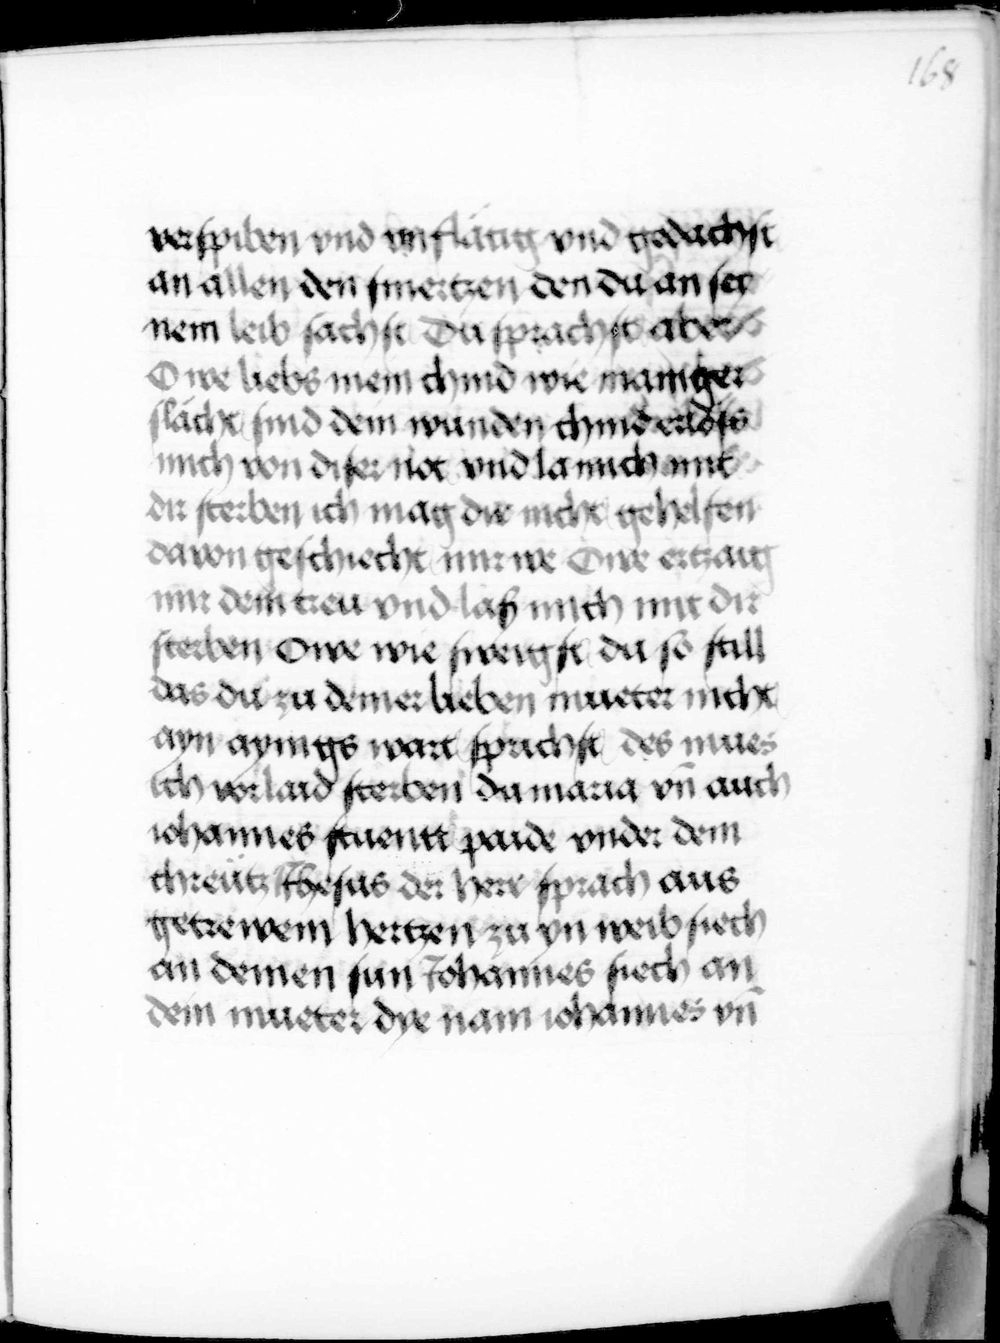 168
verspiben vnd vnflätig vnd gedachst
an allen den smertzen den du an sey
nem leib sachst Du sprachst aber
O we liebs mein chind wie maniger
slächt sind dein wunden chind erlös
mich von diser not vnd la mich mit
dir sterben ich mag dir nicht gehelfen
dauon geschiecht mir we Owe ertzaig
mir dein treu vnd laß mich mit dir
sterben Owe wie sweigst du so still
das du zu deiner lieben mueter nicht
ayn aynigs wart sprichst des mues
ich vor laid sterben da maria vn̄ auch
iohannes stuentt paide vnder dem
chreütz Jhesus der herr sprach aus
getrewem hertzen zu yn weib siech
an deinen sun Johannes siech an
dein mueter dye nam iohannes vn̄